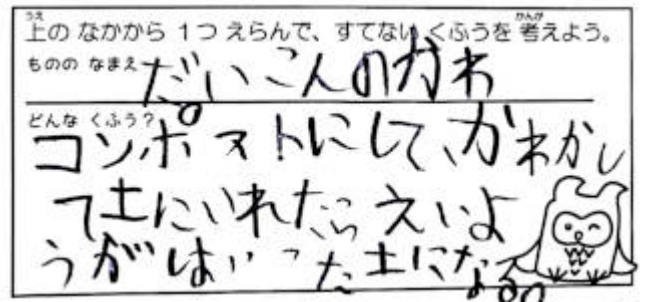 上の なかから 1つ えらんで、すてない くふうを 考えよう。
ものの なまえ
だいこんのかわ
どんな くふう?
コンポストにして、かわかし
て土にいれたら えいよ
うがはいった土になる。